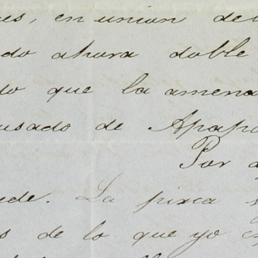 es, en union de
do ahora doble
do que la amena
usado de Apap
Por a
de. La pieza s
s de lo que yo e